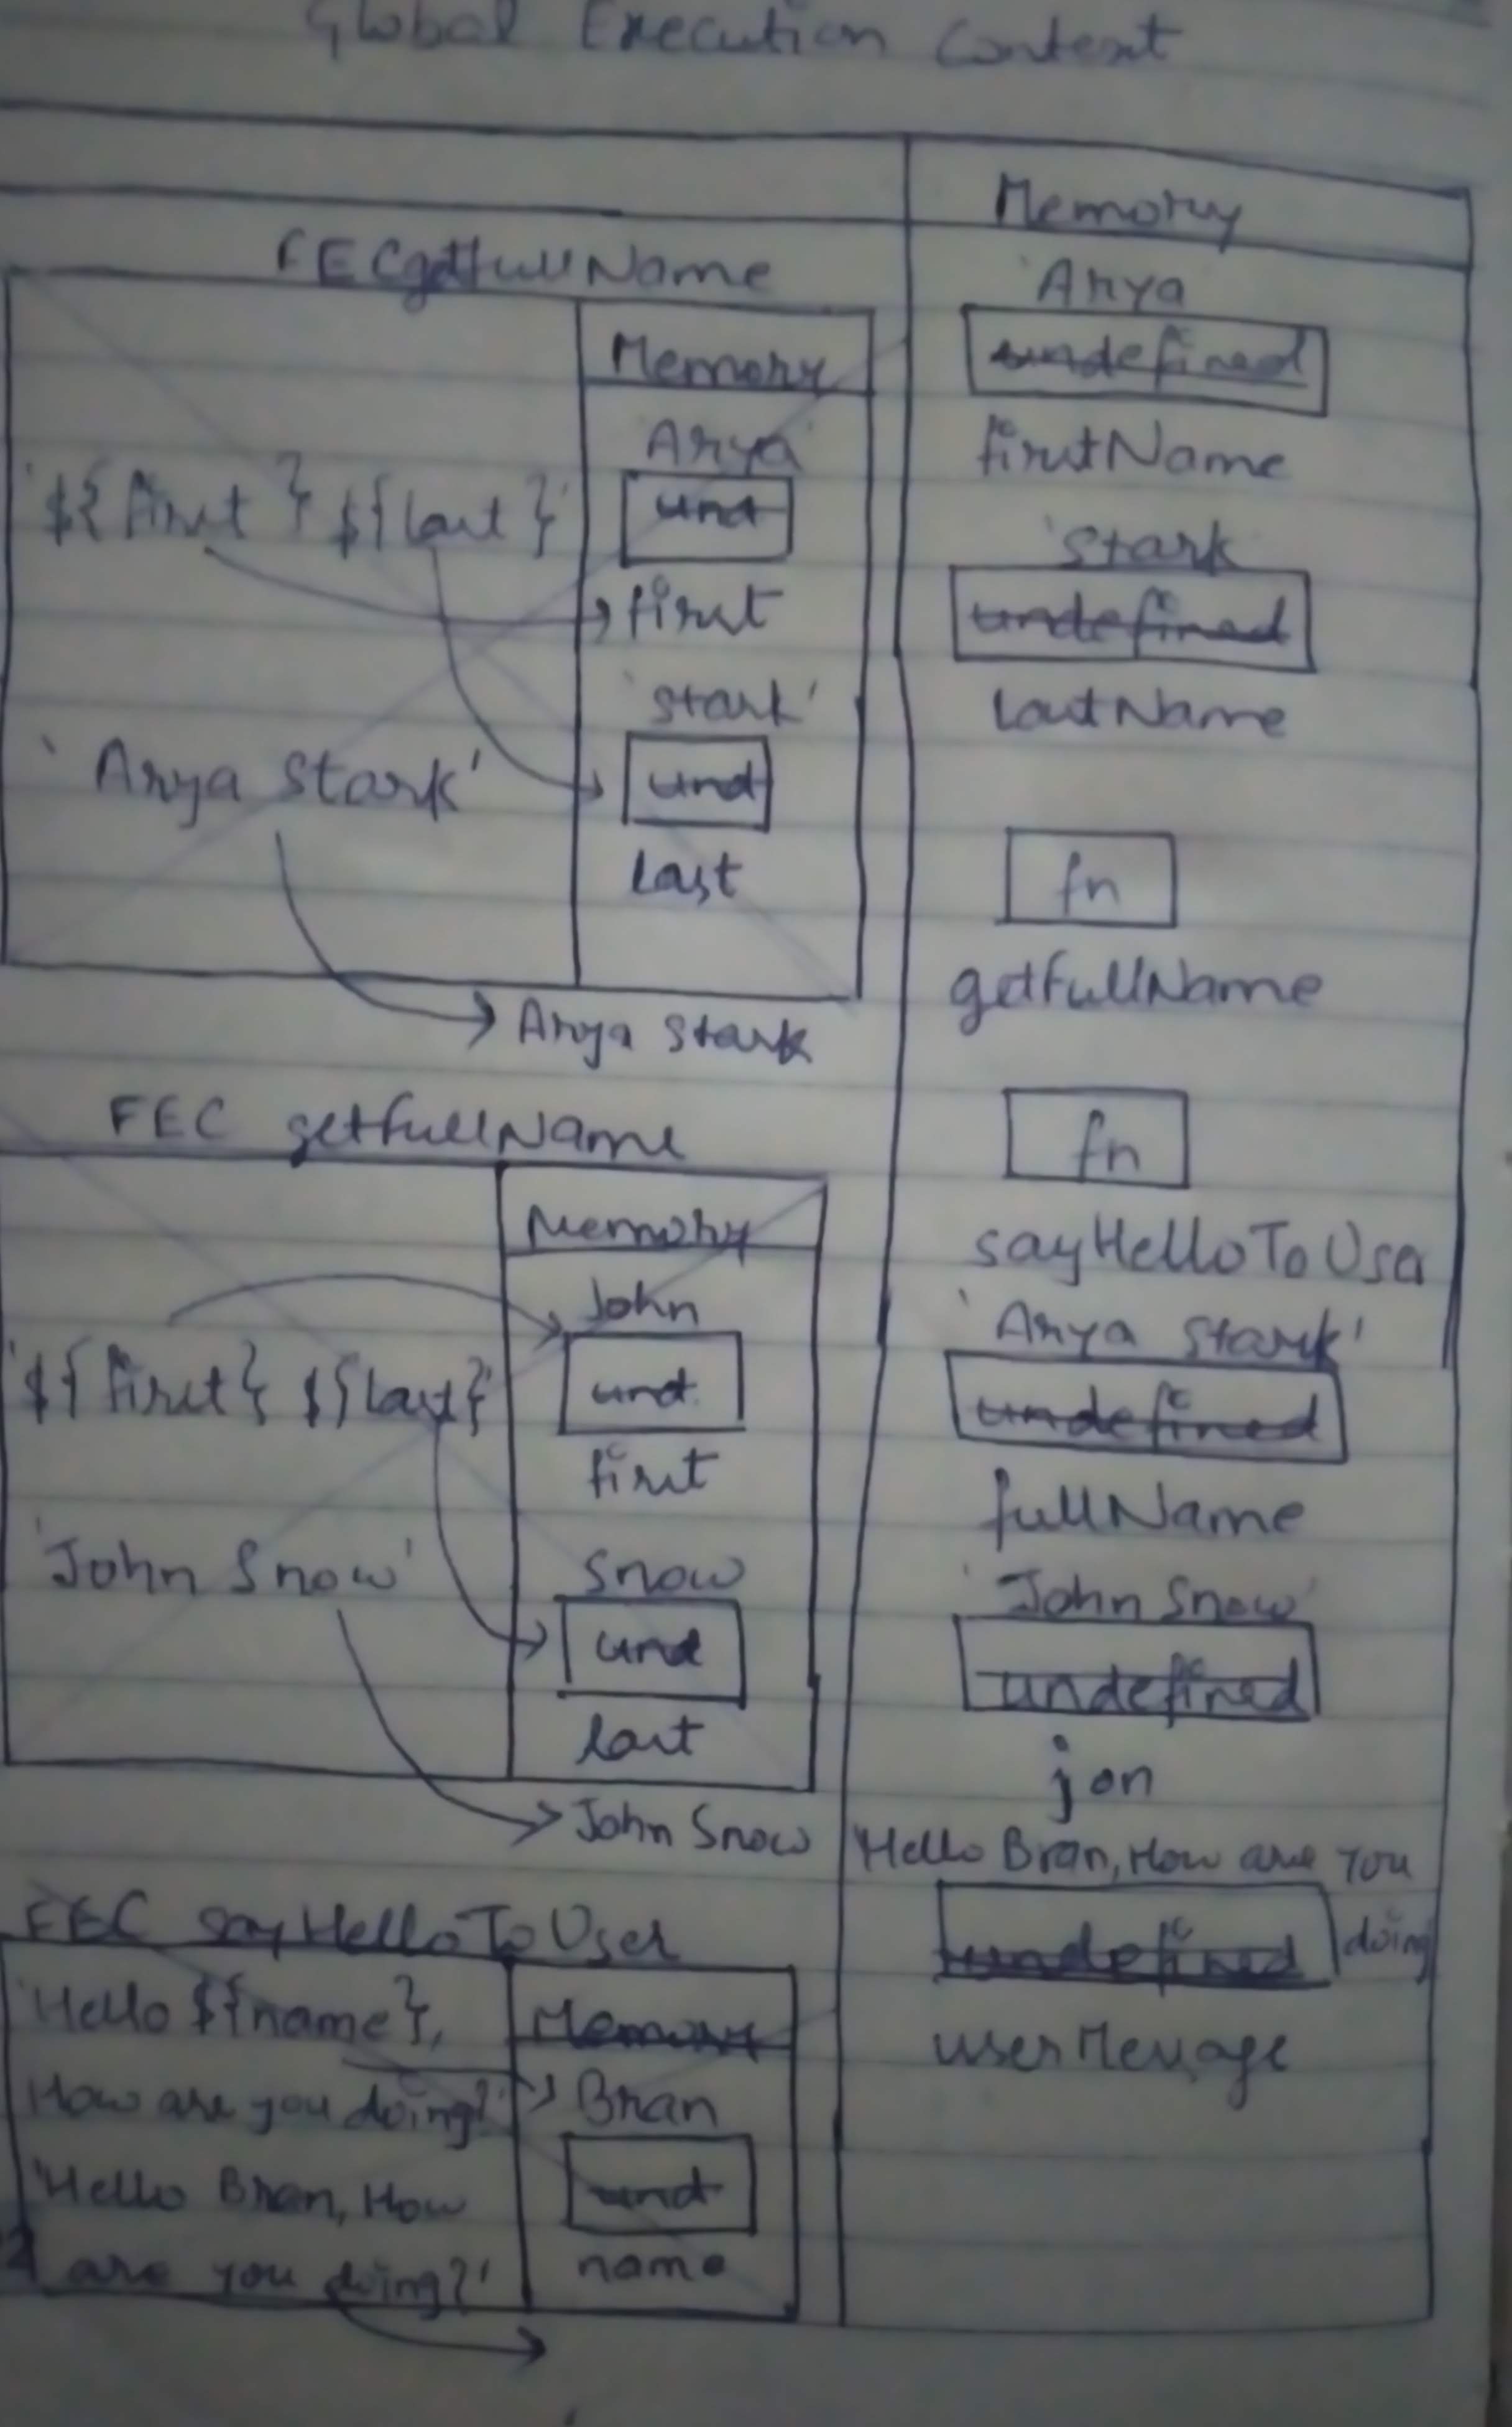 Global Execution Context
FEC getfullName
Memory
Arya
und
`${first} ${last}`
first
'stark'
und
last
'Arya Stark'
Arya Stark
FEC getfullName
Memory
John
und.
`${first} ${last}`
first
Snow
und
last
'John Snow'
John Snow
FEC sayHelloToUser
'Hello ${name},
How are you doing?'
'Hello Bran, How
are you doing?'
Memory
Bran
und
name
Memory
'Arya
undefined
firstName
'stark
undefined
lastName
fn
getfullName
fn
sayHelloToUser
'Arya Stark'
undefined
fullName
'John Snow'
undefined
jon
'Hello Bran, How are you
doing
undefined
userMessage